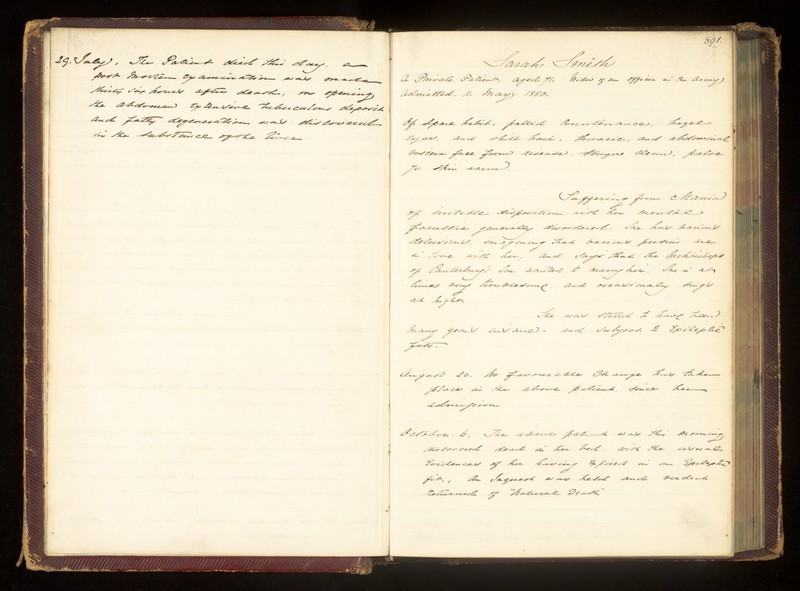 29. July. The Patient died this day. a
post mortem examination was made
thirty six hours after death, on opening
the abdomen extensive tuberculous deposit
and fatty degeneration was discovered
in the substance of the liver
891.
Sarah Smith
A Private Patient, aged 71. Widow of an officer in the army
admitted, 11. May, 1850.
Of spare habit, pallid countenance, hazel
eyes, and white hair, thoracic, and abdominal
viscera free from disease, tongue clean, pulse
70 skin warm.
Suffering from Mania
of irritable disposition with her mental
faculties generally disordered. She has various
delusions, imagining that various persons are
in love with her, and says that the Archbishops
of Canterbury's son wanted to marry her. She is at
times very troublesome, and occasionally sings
at night.
She was stated to have been
many years insane, and subject to Epileptic
fits.
August 20. No favourable Change has taken
place in the above patient since her
admission
October. 6. The above patient was this morning
discovered dead in her bed. with the usual
Evidences of her having Expired in an Epileptic
fit., An Inquest was held and verdict
returned of "Natural Death"